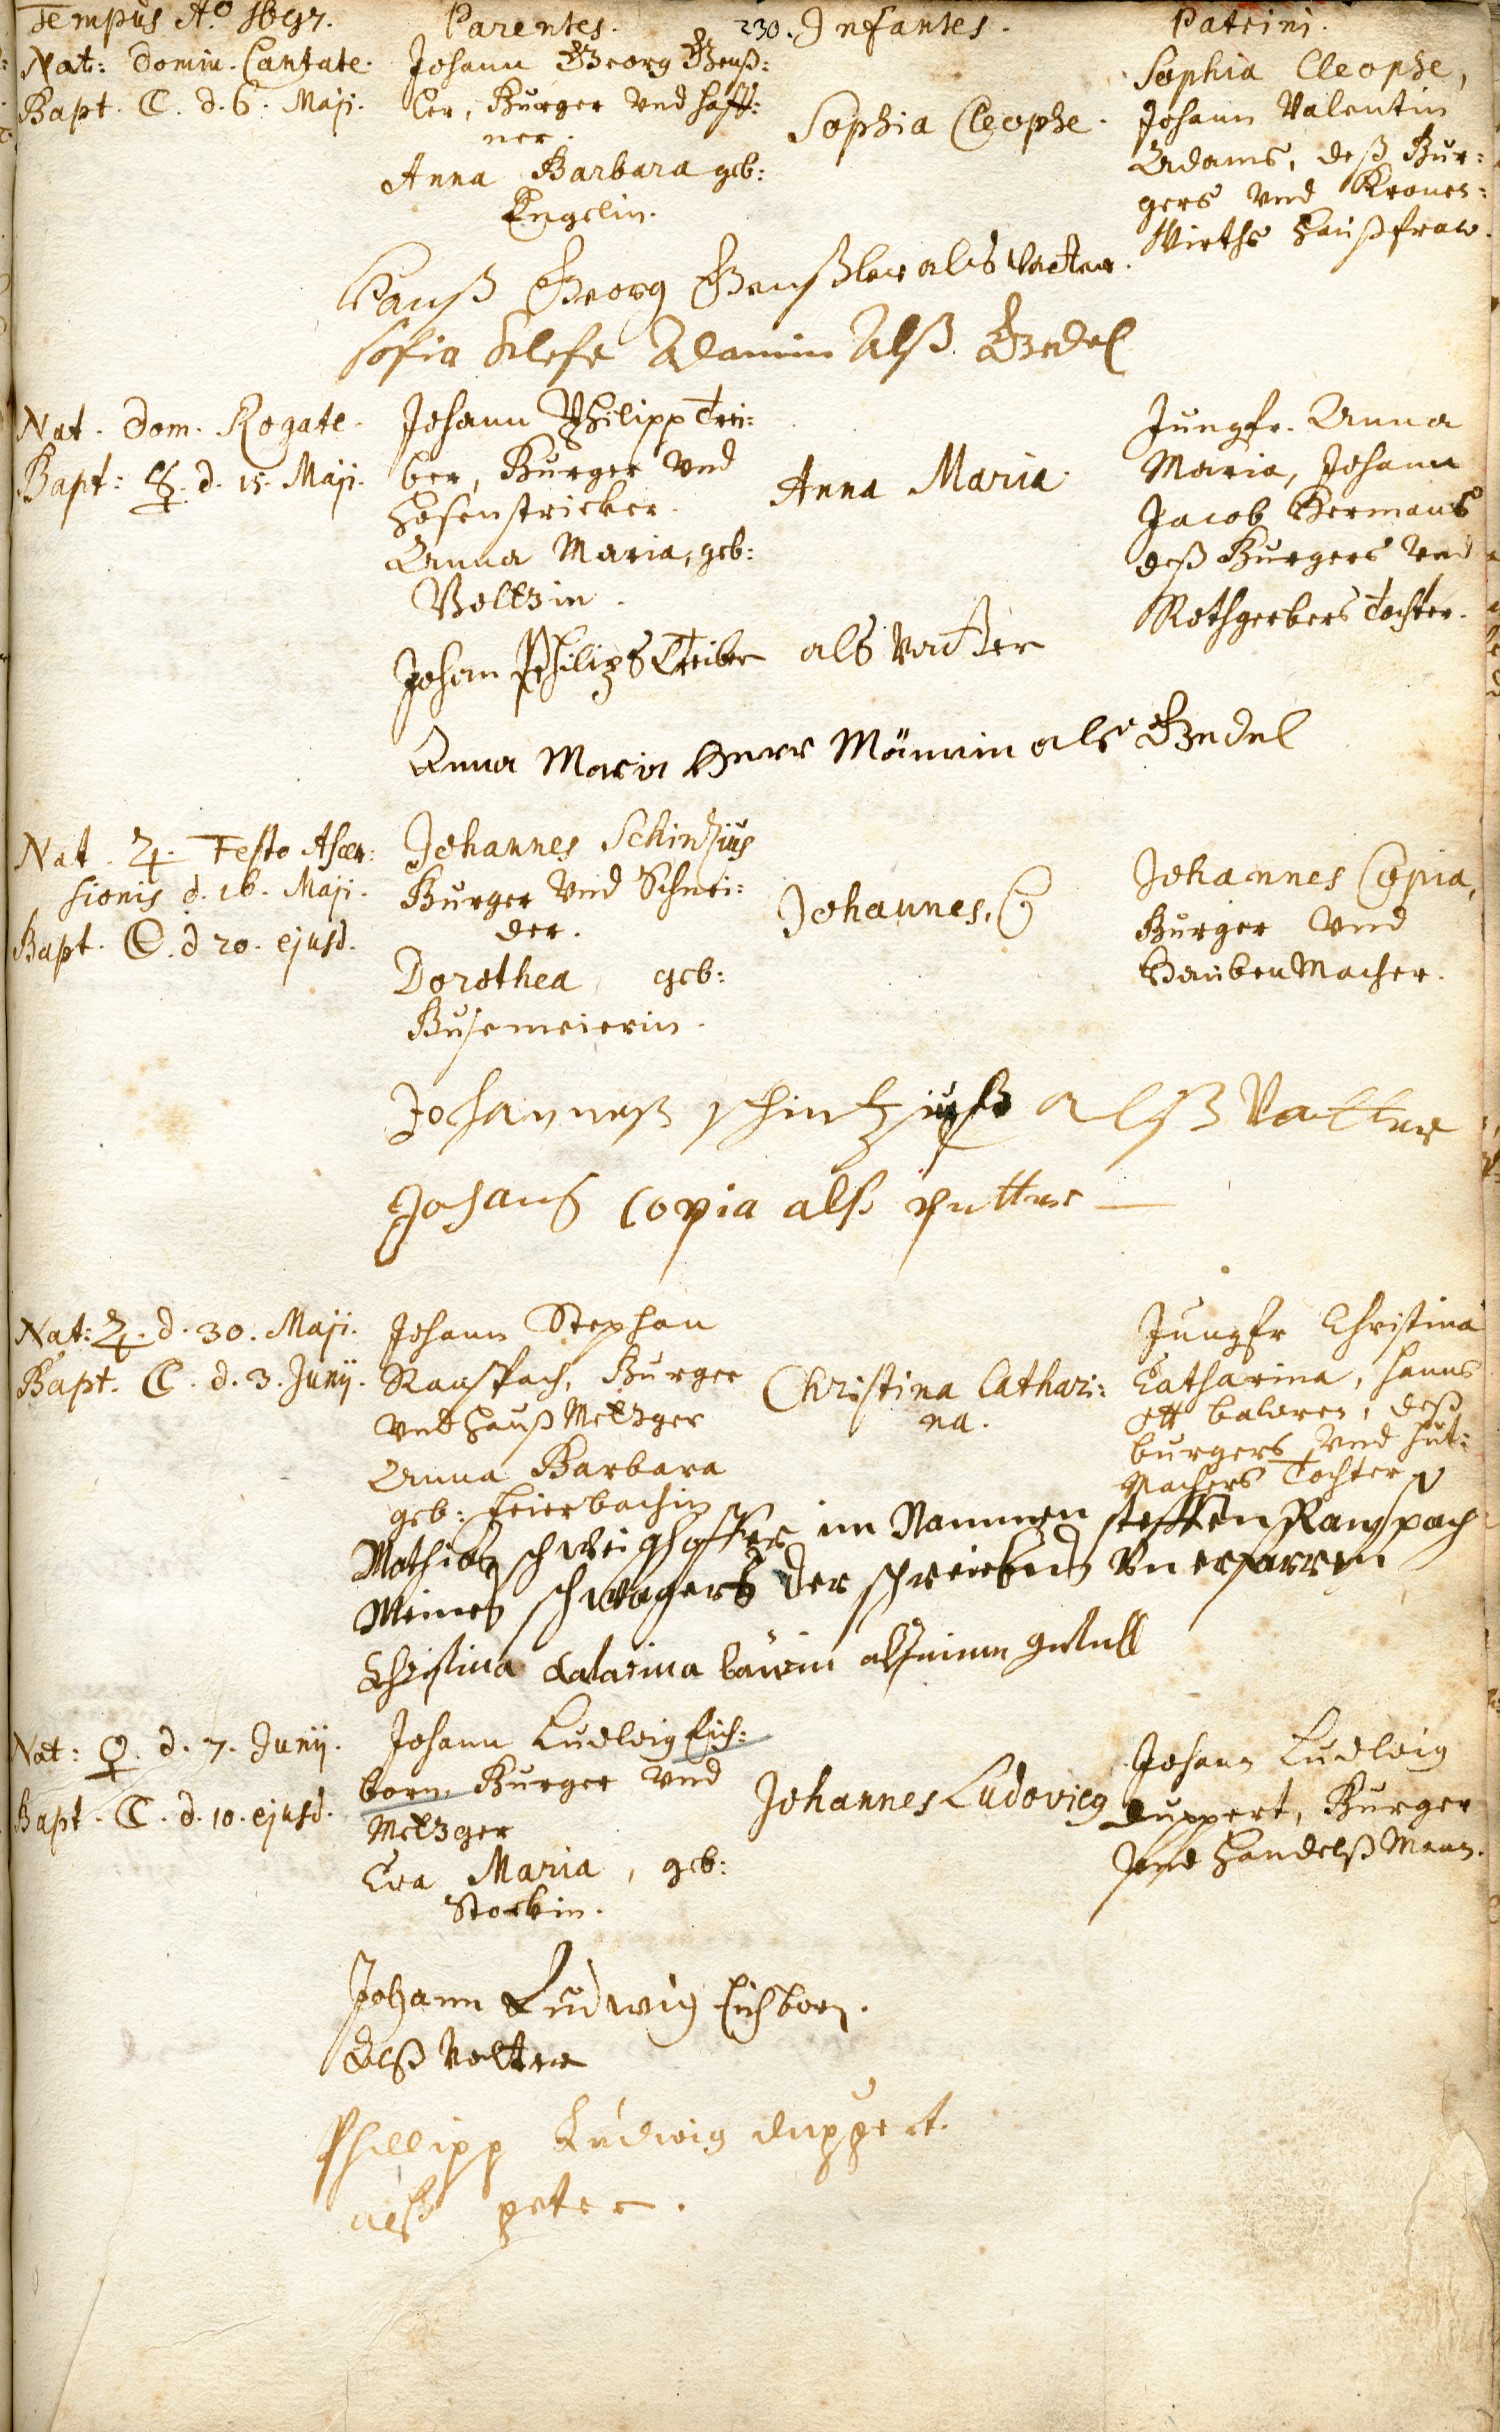 Tempus Aō 1697. Parentes. 230. Infantes. Patrini.
Nat: Domin. Cantate.
Bapt. ☾. d. 6. Maji.
Johann Georg Genß:
ler, Burger Vnd haff:
ner.
Anna Barbara geb:
Engelin.
Sophia Cleophe.
Sophia Cleophe,
Johann Valentin
Adams, deß Bur:
gers Vnd Kronen:
Wirths Haußfraw.
Hanß Georg Genßler als Vatter.
Sofia Klefe Adamin Alß Gedel
Nat. Dom. Rogate.
Bapt: ☿. d. 15. Maji.
Johann Philipp Trei:
ber, Burger Vnd
Hosenstricker.
Anna Maria, geb:
Voltzin.
Anna Maria.
Jungfr. Anna
Maria, Johann
Jacob Hermans
deß Burgers Vnd
Rothgerbers Tochter.
Johan Philips Treiber als Vatter
Anna Maria Herr Männin als Gedel
Nat. ♃. Festo Ascen:
sionis d. 16. Maji.
Bapt. ☾. d 20. ejusd.
Johannes Schintzius
Burger Vnd Schnei:
der.
Dorothea geb:
Busemeierin.
Johannes.
Johannes Copia,
Burger Vnd
Haubenmacher.
Johanneß schintziuß alß Vatter
Johans Copia alß petter
Nat: ♃. d. 30. Maji.
Bapt. ☾. d. 3. Junij.
Johann Stephan
Raospach, Burger
Vnd Hauß Metzger
Anna Barbara
geb: Feierbachin
Christina Cathari:
na.
Jungfr Christina
Catharina, Hanns
deß
burgers Vnd Hut:
machers Tochter
Mathias schweighoffer im Nammen steffen Raospach
Meines schwagers der schreibens Vnerfarren
Christina Catarina
Nat: ♀. d. 7. Junij.
Bapt. ☾. d. 10. ejusd.
Johann Ludwig Eich:
born, Burger Vnd
Metzger
Eva Maria, geb:
Stockin.
Johannes Ludovicus
Johann Ludwig
Duppert, Burger
Vnd Handelß Mann.
Johann Ludwig Eichborn.
Alß Vatter
Phillipp Ludwig duppert.
alß peter.